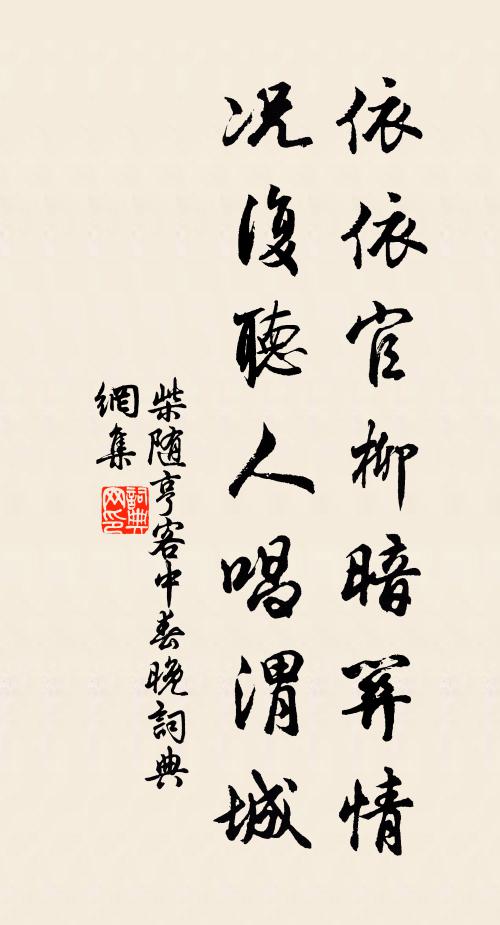 依依官柳暗關情
况復聽人唱渭城
柴随亨客中春晚詞典
網集
詞典網印